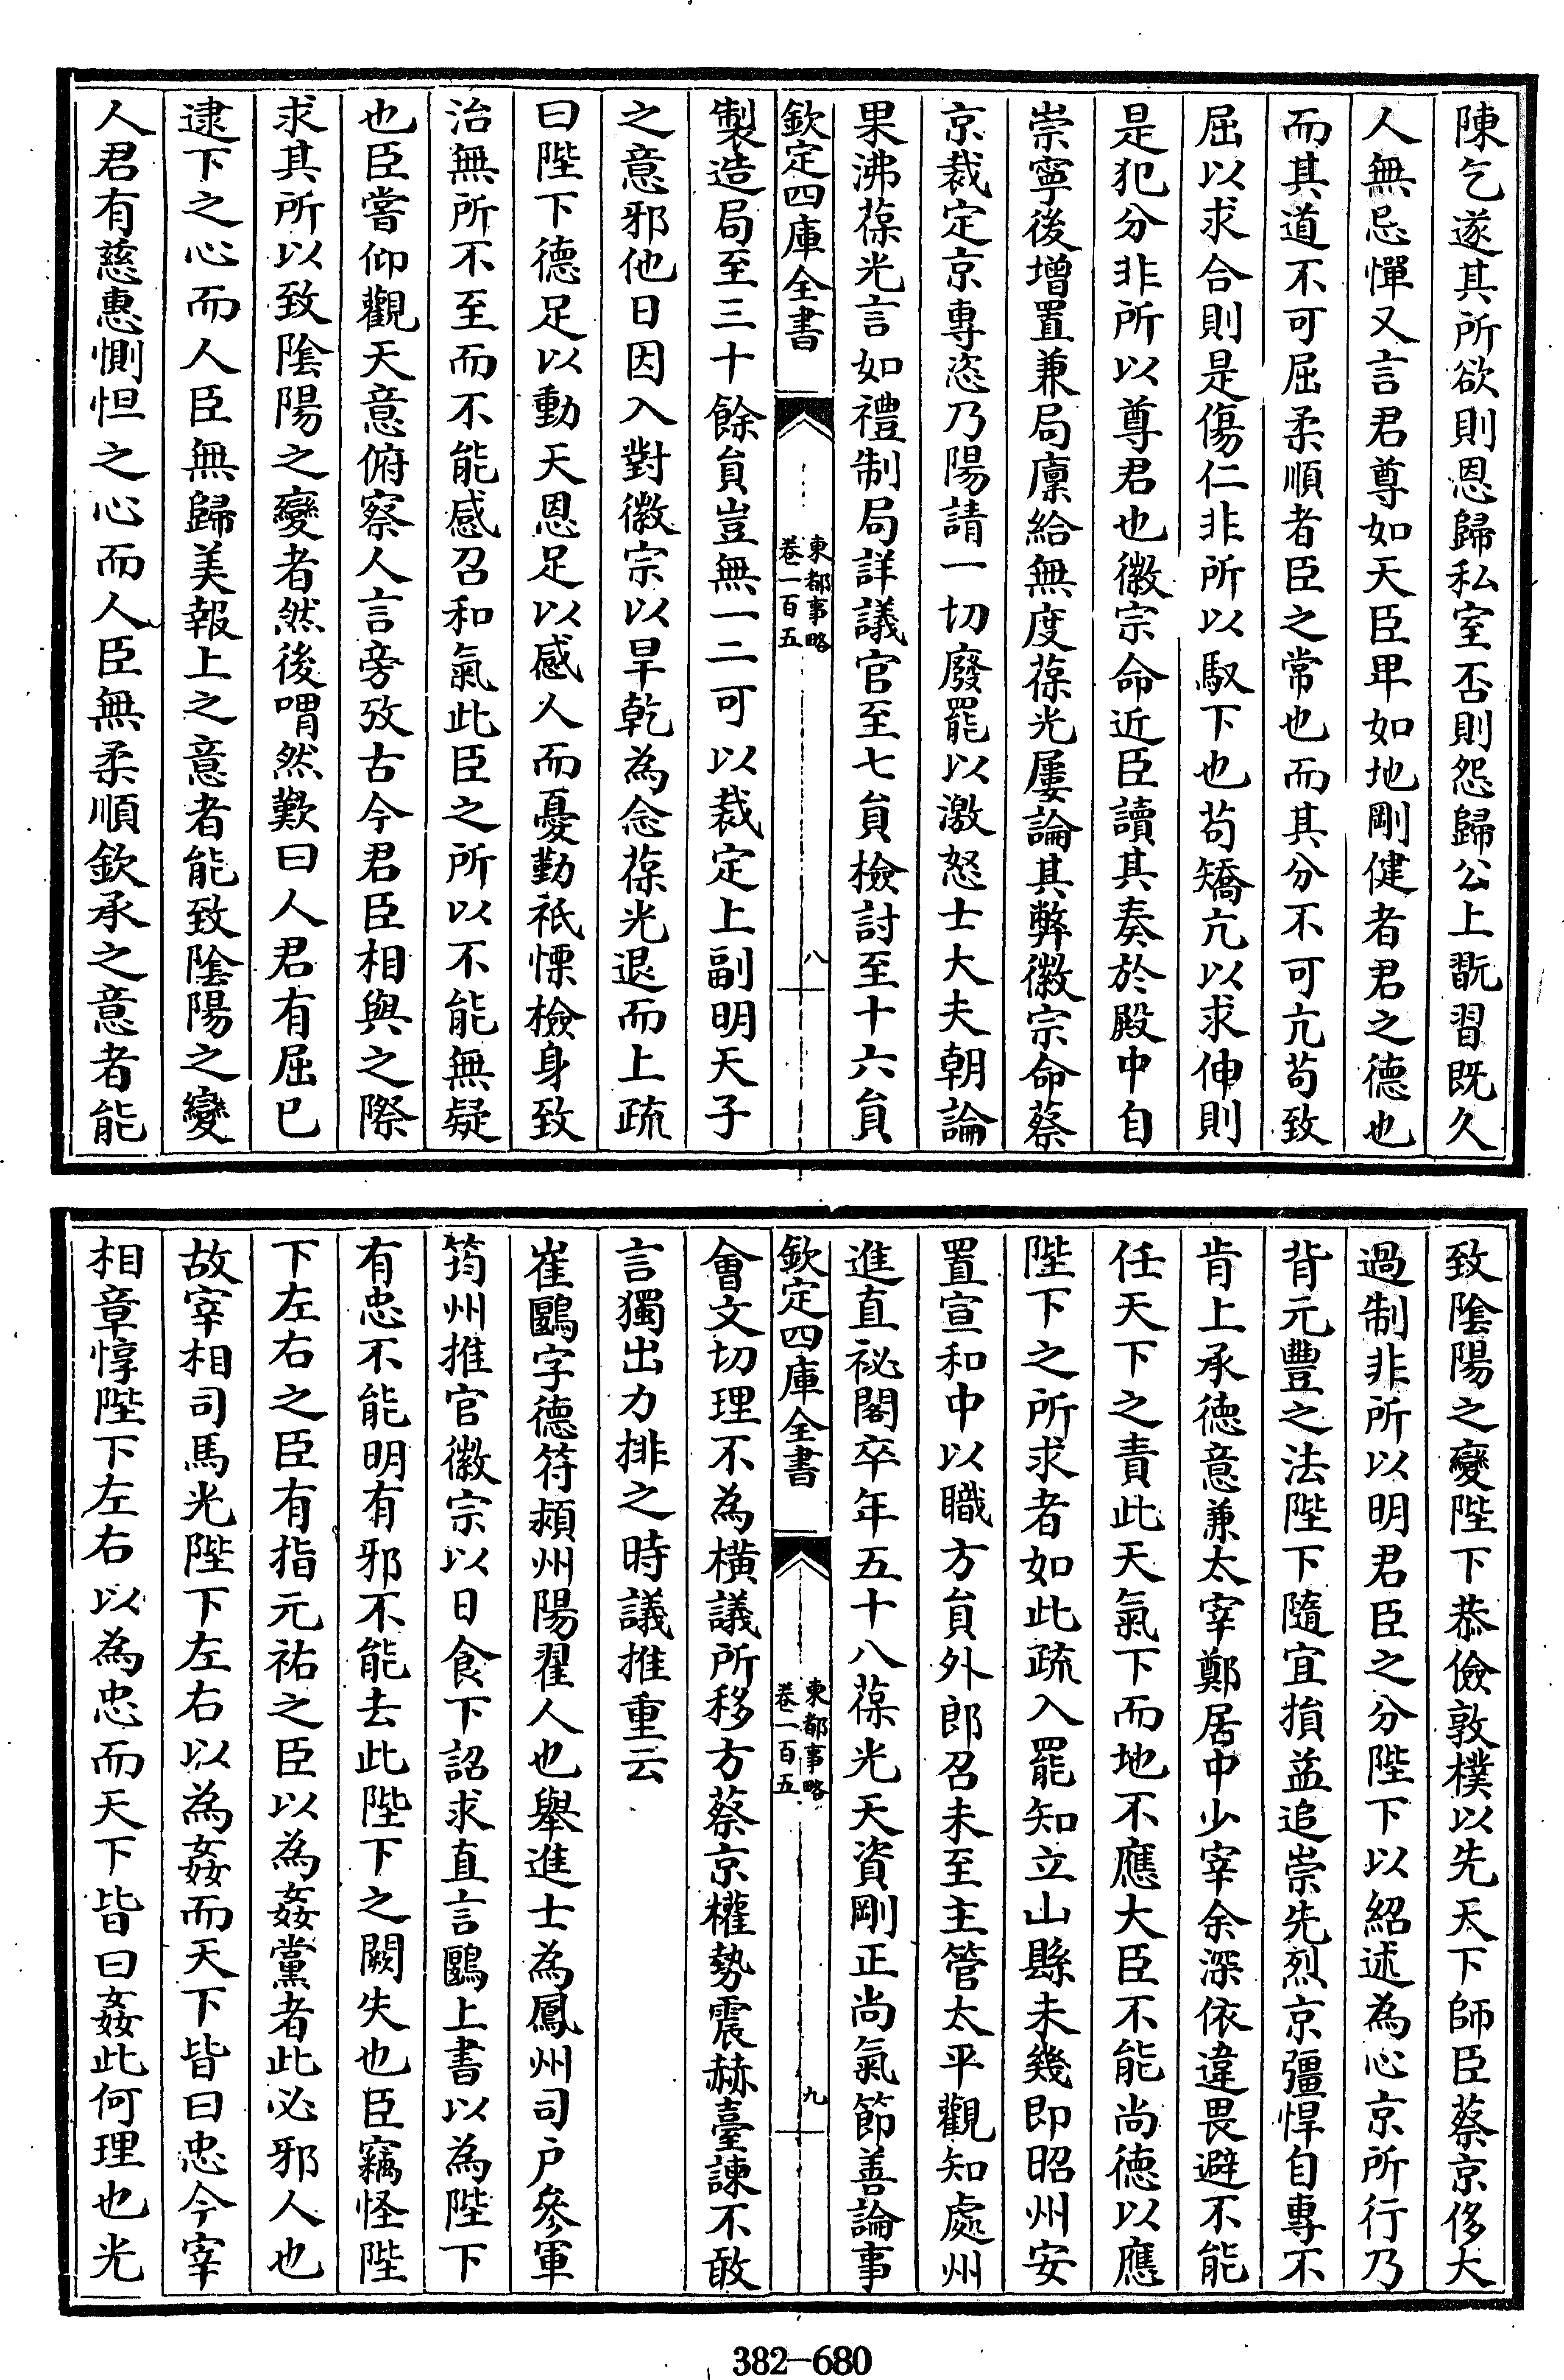 陳乞遂其所欲則恩歸私室否則怨歸公上翫習既久
人無忌憚又言君尊如天臣卑如地剛健者君之德也
而其道不可屈柔順者臣之常也而其分不可亢苟致
屈以求合則是傷仁非所以馭下也苟矯亢以求伸則
是犯分非所以尊君也徽宗命近臣讀其奏於殿中自
崇寧後增置兼局廩給無度葆光屢論其弊徽宗命蔡
京裁定京專恣乃陽請一切廢罷以激怒士大夫朝論
果沸葆光言如禮制局詳議官至七員檢討至十六員
欽定四庫全書
東都事略
卷一百五
八
製造局至三十餘員豈無一二可以裁定上副明天子
之意邪他日因入對徽宗以旱乾為念葆光退而上疏
曰陛下德足以動天恩足以感人而憂勤祇慄檢身致
治無所不至而不能感召和氣此臣之所以不能無疑
也臣嘗仰觀天意俯察人言旁攷古今君臣相與之際
求其所以致陰陽之變者然後喟然歎曰人君有屈已
逮下之心而人臣無歸美報上之意者能致陰陽之變
人君有慈惠惻怛之心而人臣無柔順欽承之意者能
致陰陽之變陛下恭儉敦樸以先天下師臣蔡京侈大
過制非所以明君臣之分陛下以紹述為心京所行乃
背元豐之法陛下隨宜損益追崇先烈京彊悍自專不
肯上承德意兼太宰鄭居中少宰余深依違畏避不能
任天下之責此天氣下而地不應大臣不能尚德以應
陛下之所求者如此疏入罷知立山縣未幾即昭州安
置宣和中以職方員外郎召未至主管太平觀知處州
進直祕閣卒年五十八葆光天資剛正尚氣節善論事
欽定四庫全書
東都事略
卷一百五
九
會文切理不為橫議所移方蔡京權勢震赫臺諫不敢
言獨出力排之時議推重云
崔鷗字德符潁州陽翟人也舉進士為鳳州司户參軍
筠州推官徽宗以日食下詔求直言鷗上書以為陛下
有忠不能明有邪不能去此陛下之闕失也臣竊怪陛
下左右之臣有指元祐之臣以為姦黨者此必邪人也
故宰相司馬光陛下左右以為姦而天下皆曰忠今宰
相章惇陛下左右以為忠而天下皆曰姦此何理也光
382-680